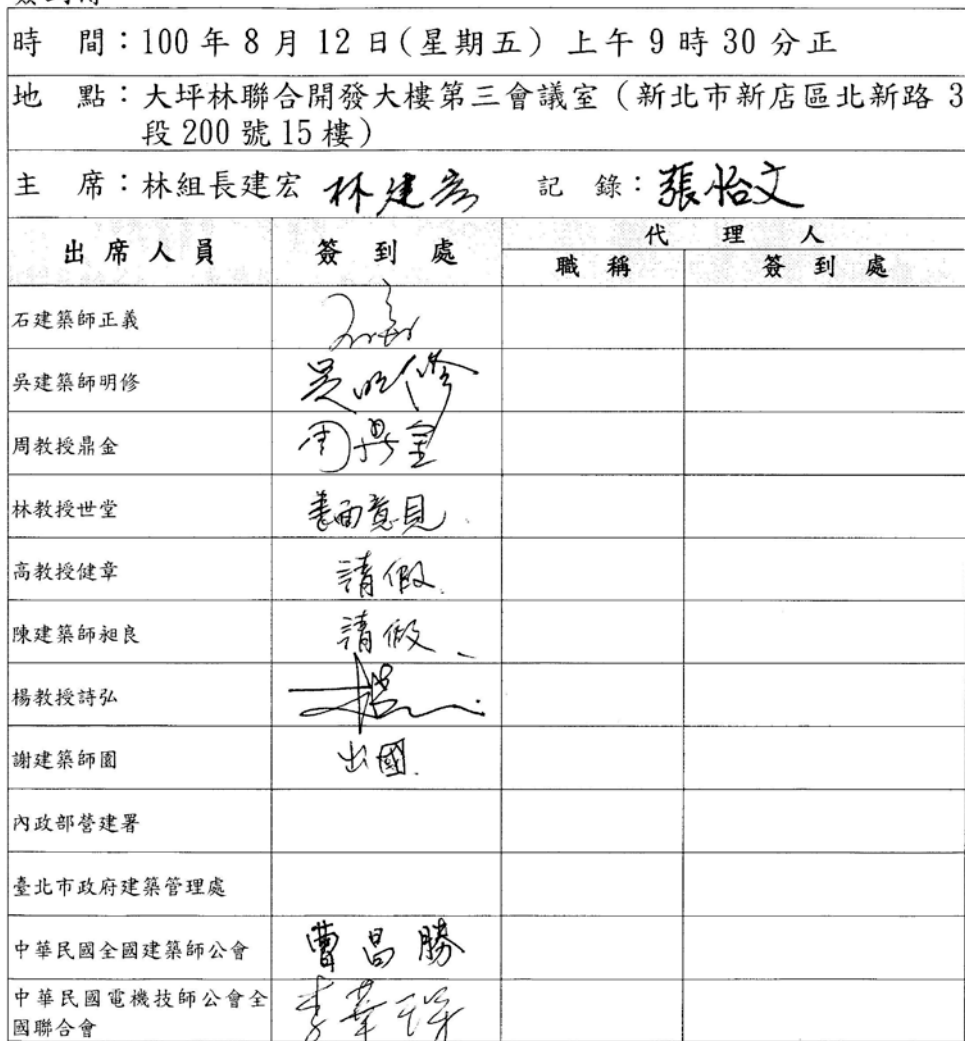 時 間：100 年 8 月 12 日(星期五) 上午 9 時 30 分正
地 點：大坪林聯合開發大樓第三會議室（新北市新店區北新路 3
段 200 號 15 樓）
主 席：林組長建宏 林建宏 記 錄：張怡文
出席人員 簽到處 代理人
職稱 簽到處
石建築師正義
吳建築師明修 吳明修
周教授鼎金 周鼎金
林教授世堂 書面意見
高教授健章 請假
陳建築師昶良 請假
楊教授詩弘
謝建築師園 出國
內政部營建署
臺北市政府建築管理處
中華民國全國建築師公會 曹昌勝
中華民國電機技師公會全
國聯合會